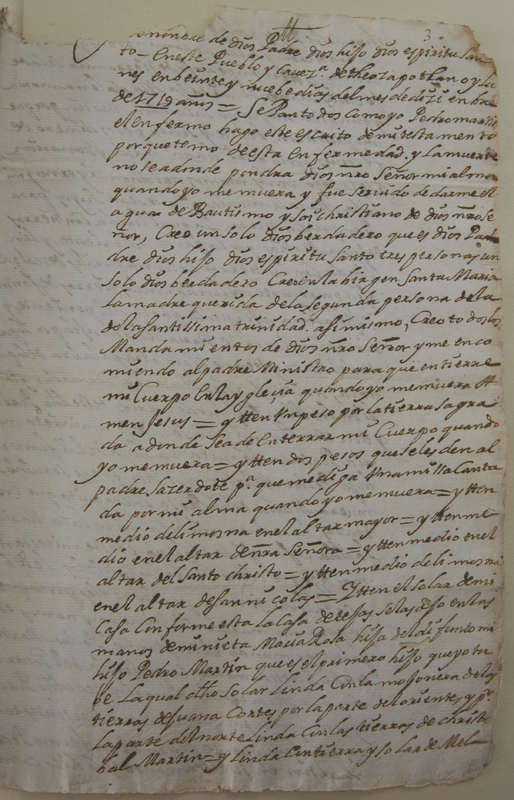 3.
nombre de dios Padre dios hijo dios espiritu san
to – En este Pueblo y Cavez.ª de theozapotlan oy lu
nes en beinte y nuebe dias del mes de diziembre
de 1719 años = Se Pan todos como yo Pedro martin
el enfermo hago este escrito de mi testamento
porque temo de esta enfermedad, y la muerte
no se adonde pondra dios nro Señor mi alma
quando yo me muera y fue seruido de darme el
agua de Bautismo y soi christiano de dios nro Se
ñor, Creo un solo dios berdadero que es dios Pa
dre dios hijo dios espiritu santo tres personas y un
solo dios berdadero Creo en la birgen Santa Maria
la madre querida de la segunda persona de la
de la santissima trinidad. asimismo, Creo todos los
Mandamientos de dios nro Señor y me enco
miendo al padre Ministro para que entierre
mi Cuerpo en la yglecia quando yo me muera A
men Jesus = ytten un peso por la tierra sagra
da adonde sea de enterrar mi Cuerpo quando
yo me muera = ytten dos pesos que se les den al
padre sazerdote p.ª que me diga una missa Canta
da por mi alma quando yo me muera = ytten
medio de limosna en el altar mayor = ytten me
dio en el altar de nra Señora = ytten medio en el
altar del Santo christo = ytten medio de limosna
en el altar de san nicolas = Ytten el solar de mi
Casa Conforme esta la Casa de texas se la dejo en las
manos de mi nieta Maria Rosa hija del difunto mi
hijo Pedro Martin que es el primero hijo que yo tu
be La qual dho Solar Linda Con la mojonera de las
tierras de Juana Cortes por la parte del oriente y p.r
la parte del norte Linda Con las tierras de christo
bal Martin = y Linda Con tierra y solar de Mel